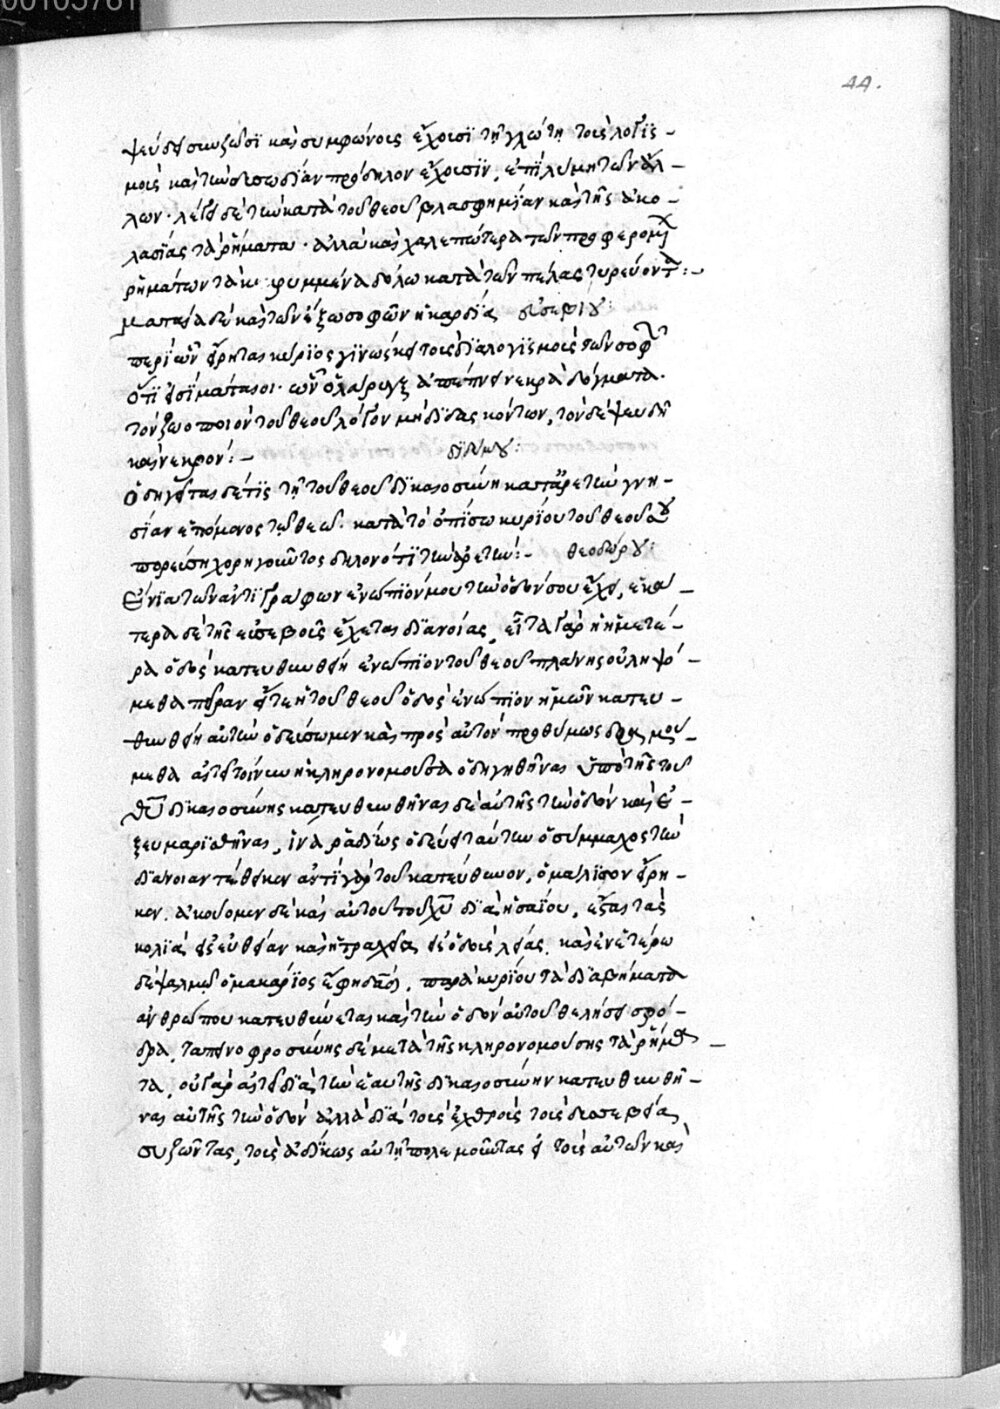 00105761
44.
ψεύδει συζῶσι καὶ συμφώνοις ἔχουσι τῇ γλώττῃ τοὺς λογισ-
μοὺς καὶ τὴν δυσωδίαν πρόδηλον ἔχουσιν, ἐπὶ λύμῃ τῶν ἄλ-
λων. λέγει δὲ τὴν κατὰ τοῦ θεοῦ βλασφημίαν καὶ τῆς ἀκο-
λασίας τὰ ῥήματα. ἀλλὰ καὶ χαλεπώτερα τῶν προφερομέν
ῥημάτων τὰ κεκρυμμένα δόλω κατὰ τῶν πέλας τυρεύοντ:-
ματαία δὲ καὶ τῶν ἔξω σοφῶν ἡ καρδία εὐσεβίου:
περὶ ὧν εἴρηται κύριος γινώσκει τοὺς διαλογισμοὺς τῶν σοφ
ὅτι εἰσὶ μάταιοι. ὧν ὁ λάρυγξ ἀπέπνει νεκρὰ δόγματα.
τὸν ζωοποιὸν τοῦ θεοῦ λόγον μὴ διδασκόντων, τὸν δὲ ψευδῆ
καὶ νεκρόν:- διδύμου:
ὁδηγεῖται δέ τις τῇ τοῦ θεοῦ δικαιοσύνη κατ' ἀρετὴν γνη-
σίαν ἑπόμενος τῷ θεῷ. κατὰ τὸ ὀπίσω κυρίου τοῦ θεοῦ σου
πορεύσῃ χορηγοῦντος δηλονότι τὴν ἀρετήν:- θεοδώρου:
Ἔνια τῶν ἀντιγράφων ἐνώπιόν μου τὴν ὁδόν σου ἔχει, ἑκα-
τέρα δὲ τῆς εὐσεβοῦς ἔχεται διανοίας, εἴτα γὰρ ἡ ἡμετέ-
ρα ὁδὸς κατευθυνθῇ ἐνώπιον τοῦ θεοῦ πλάνης οὐ ληψό-
μεθα πεῖραν εἴτε ἡ τοῦ θεοῦ ὁδὸς ἐνώπιον ἡμῶν κατευ-
θυνθῇ αὐτὴν ὁδεύσωμεν καὶ πρὸς αὐτὸν προθύμως δραμού-
μεθα αἰτεῖ τοίνυν ἡ κληρονομοῦσα ὁδηγηθῆναι ὑπὸ τῆς τοῦ
θυ δικαιοσύνης κατευθυνθῆναι δὲ αὐτῆς τὴν ὁδὸν καὶ ἐ-
ξευμαρισθῆναι, ἵνα ῥαδίως ὁδεύει ταύτην ὁ σύμμαχος τὴν
διάνοιαν τέθεικεν ἀντὶ γὰρ τοῦ κατεύθυνον, ὁμάλισον εἴρη-
κεν. ἀκούομεν δὲ καὶ αὐτοῦ τοῦ χυ διὰ ἡσαίου, ἔσται τὰ
σκολιὰ εἰς εὐθείαν καὶ ἡ τραχεῖα εἰς ὁδοὺς λείας. καὶ ἐν ἑτέρω
δὲ ψαλμῷ ὁ μακάριος ἔφη δαδ, παρὰ κυρίου τὰ διαβήματα
ἀνθρώπου κατευθύνεται καὶ τὴν ὁδὸν αὐτοῦ θελήσει σφό-
δρα. ταπεινοφροσύνης δὲ μετὰ τῆς κληρονομούσης τὰ ῥήμα-
τα, οὐ γὰρ αἰτεῖ διὰ τὴν ἑαυτῆς δικαιοσύνην κατευθυνθῆ-
ναι αὐτῆς τὴν ὁδὸν ἀλλὰ διὰ τοὺς ἐχθροὺς τοὺς δυσσεβείᾳ
συζῶντας, τοὺς ἀδίκως αὐτῇ πολεμοῦντας ἢ τοὺς αὐτῶν καὶ